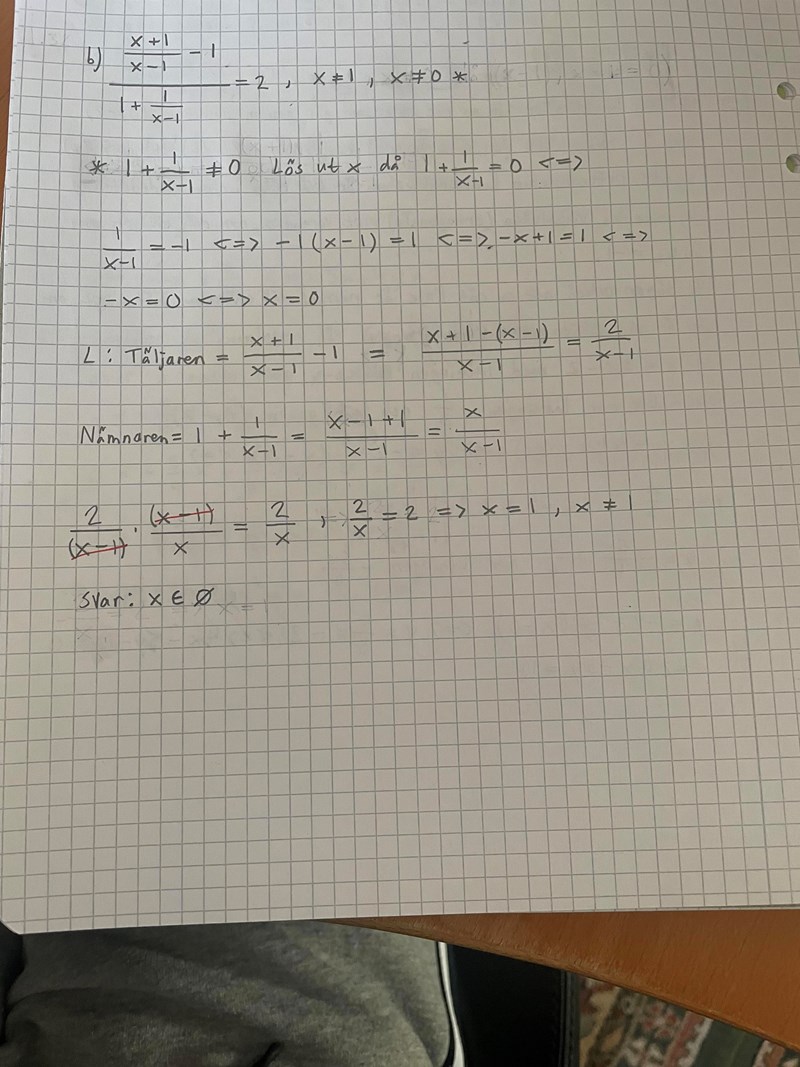 b) (((x+1)/(x-1)) - 1) / (1 + 1/(x-1)) = 2 , x ≠ 1 , x ≠ 0 *
* 1 + 1/(x-1) ≠ 0 Lös ut x då 1 + 1/(x-1) = 0 <=>
1/(x-1) = -1 <=> -1(x-1) = 1 <=> -x+1=1 <=>
-x=0 <=> x=0
L: Täljaren = (x+1)/(x-1) - 1 = (x+1-(x-1))/(x-1) = 2/(x-1)
Nämnaren = 1 + 1/(x-1) = (x-1+1)/(x-1) = x/(x-1)
2/(x-1) · (x-1)/x = 2/x , 2/x = 2 => x=1 , x ≠ 1
svar: x ∈ ∅